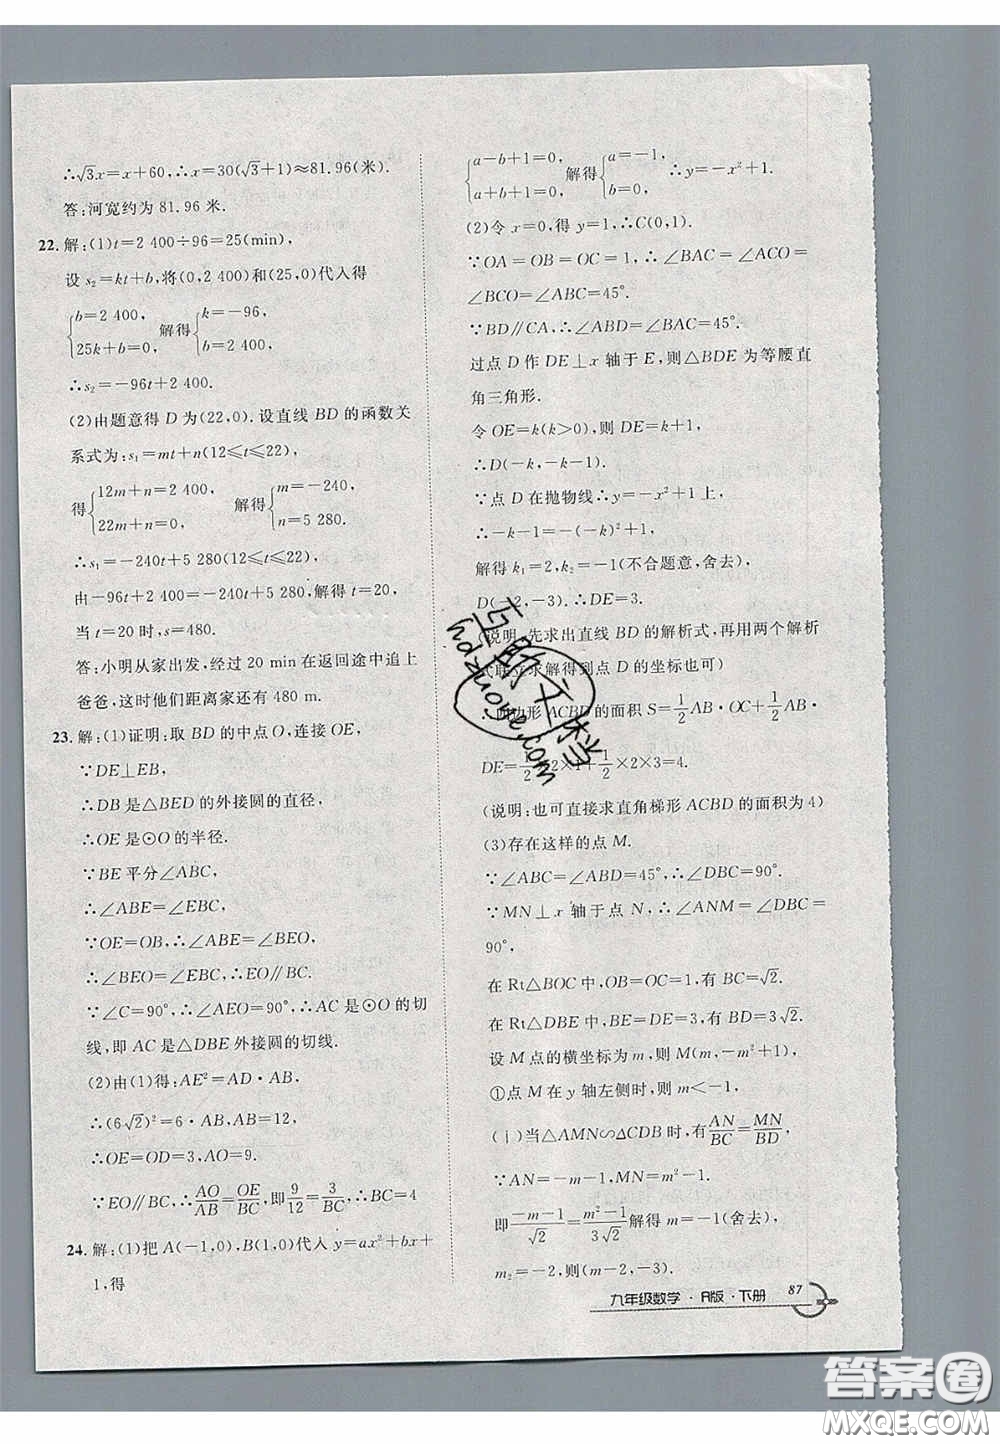 ∴√3x=x+60,∴x=30(√3+1)≈81.96(米).
答:河宽约为81.96米.
22.解:(1)t=2 400÷96=25(min),
设s₂=kt+b,将(0,2 400)和(25,0)代入得
{b=2 400, 25k+b=0, 解得{k=-96, b=2 400,
∴s₂=-96t+2 400.
(2)由题意得D为(22,0).设直线BD的函数关
系式为:s₁=mt+n(12≤t≤22),
得{12m+n=0, 22m+n=0, 解得{m=-240, n=5 280.
∴s₁=-240t+5 280(12≤t≤22),
由-96t+2 400=-240t+5 280,解得t=20,
当t=20时,s=480.
答:小明从家出发,经过20 min在返回途中追上
爸爸,这时他们距离家还有480 m.
23.解:(1)证明:取BD的中点O,连接OE,
∵DE⊥EB,
∴DB是△BED的外接圆的直径,
∴OE是⊙O的半径.
∵BE平分∠ABC,
∴∠ABE=∠EBC,
∵OE=OB,∴∠ABE=∠BEO,
∴∠BEO=∠EBC,∴EO∥BC.
∵∠C=90°,∴∠AEO=90°,∴AC是⊙O的切
线,即AC是△DBE外接圆的切线.
(2)由(1)得:AE²=AD·AB,
∴(6√2)²=6·AB,AB=12,
∴OE=OD=3,AO=9.
∵EO∥BC,∴AO/AB=OE/BC,即9/12=3/BC,∴BC=4
24.解:(1)把A(-1,0),B(1,0)代入y=ax²+bx+
1,得
{a-b+1=0, a+b+1=0, 解得{a=-1, b=0. ∴y=-x²+1
(2)令x=0,得y=1,∴C(0,1)
∵OA=OB=OC=1,∴∠BAC=∠ACO=
∠BCO=∠ABC=45°.
∵BD∥CA,∴∠ABD=∠BAC=45°.
过点D作DE⊥x轴于E,则△BDE为等腰直
角三角形.
令OE=k(k>0),则DE=k+1,
∴D(-k,-k-1).
∵点D在抛物线∴y=-x²+1上,
∴-k-1=-(-k)²+1,
解得k₁=2,k₂=-1(不合题意,舍去),
D(-2,-3).∴DE=3.
(说明:先求出直线BD的解析式,再用两个解析
式联立求解得到点D的坐标也可)
∴四边形ACBD的面积S=1/2AB·OC+1/2AB·
DE=1/2×2×1+1/2×2×3=4.
(说明:也可直接求直角梯形ACBD的面积为4)
(3)存在这样的点M.
∵∠ABC=∠ABD=45°,∴∠DBC=90°.
∵MN⊥x轴于点N,∴∠ANM=∠DBC=
90°,
在Rt△BOC中,OB=OC=1,有BC=√2.
在Rt△DBE中,BE=DE=3,有BD=3√2.
设M点的横坐标为m,则M(m,-m²+1)
①点M在y轴左侧时,则m<-1,
(ⅰ)当△AMN∽△CDB时,有AN/BC=MN/BD,
∵AN=-m-1,MN=m²-1,
即(-m-1)/√2=(m²-1)/3√2 解得m=-1(舍去),
m₂=-2,则(-2,-3).
九年级数学·R版·下册 87
互助文档
hdzuoye.com
答案圈
MXQE.COM